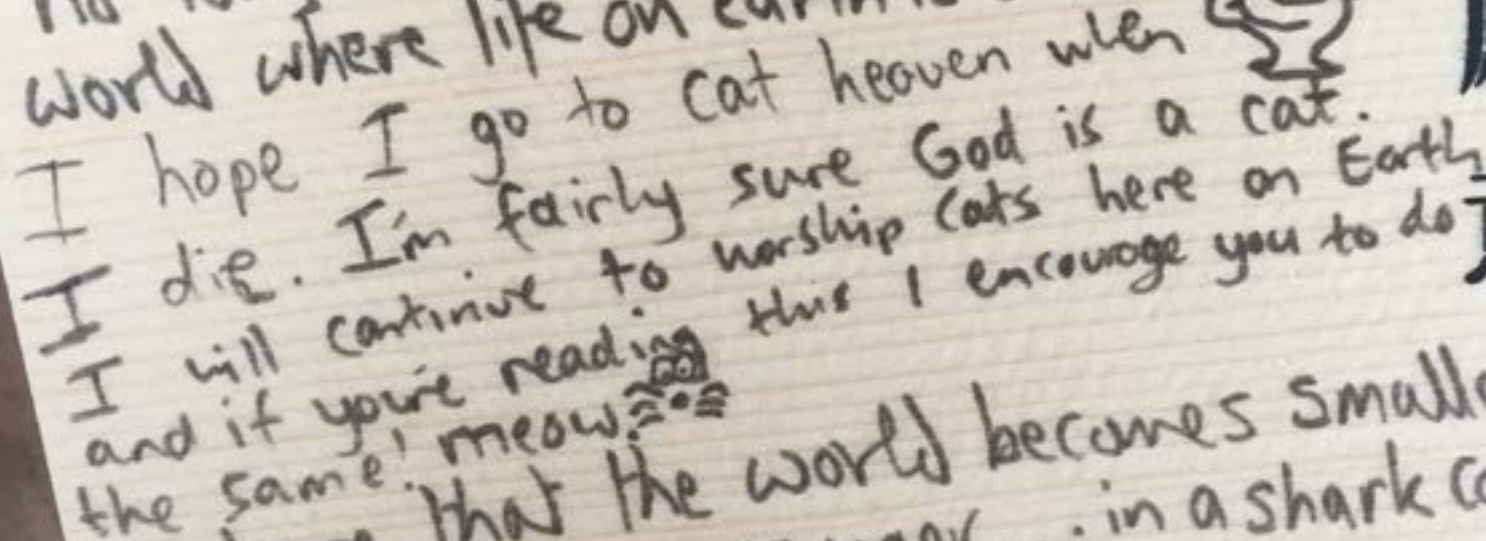 world where life on earth
I hope I go to cat heaven when
I die. I'm fairly sure God is a cat.
I will continue to worship cats here on Earth
and if you're reading this I encourage you to do
the same! meow
that the world becomes
in a shark